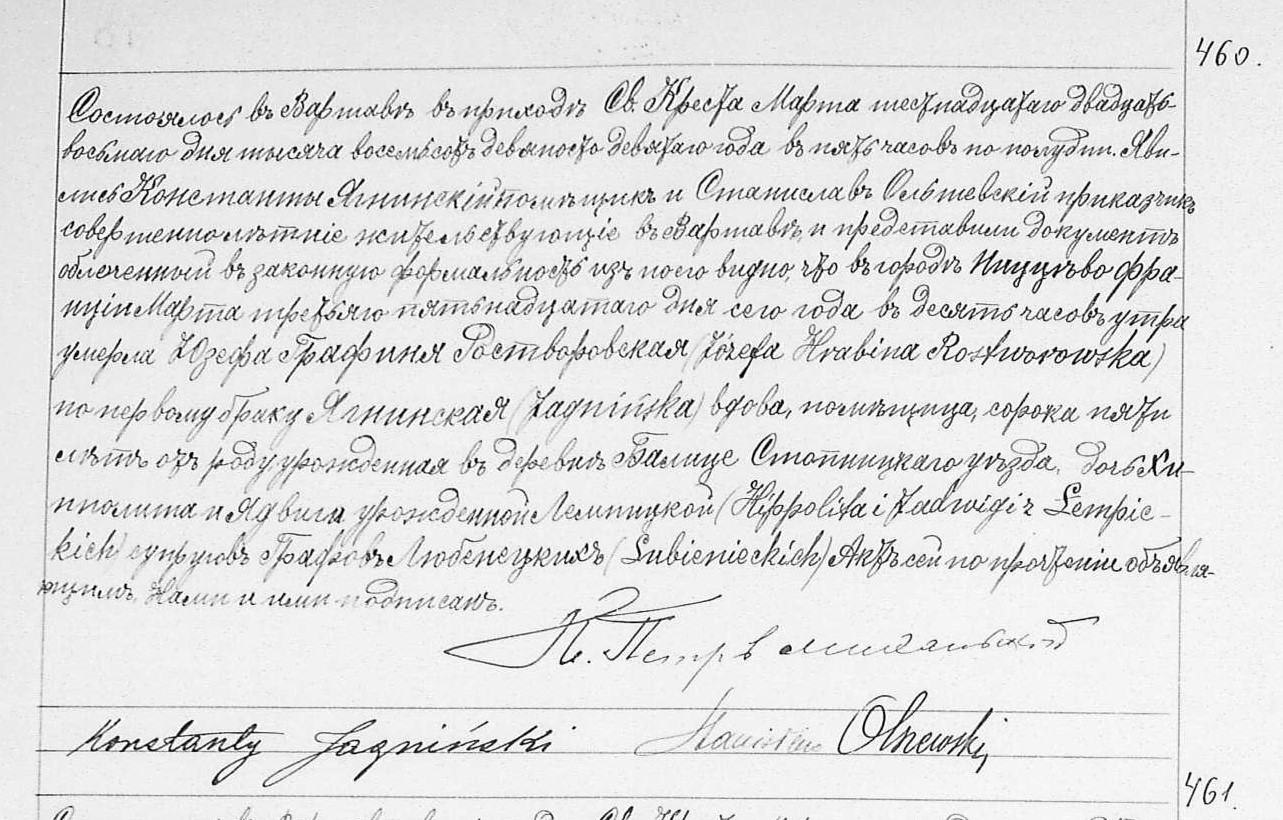 460.
Состоялось въ Варшавѣ въ приходѣ Св. Креста Марта шестнадцатаго двадцать-
восьмаго дня тысяча восемьсотъ девяносто девятаго года въ пять часовъ по полудни. Яви-
лись Константы Ягнинскій помѣщикъ и Станиславъ Ольшевскій приказчикъ
совершеннолѣтніе жительствующіе въ Варшавѣ, и представили документъ
облеченный въ законную формальность изъ коего видно, что въ городѣ Ниццѣ во Фра-
нціи Марта третьяго пятьнадцатаго дня сего года въ десять часовъ утра
умерла Юзефа Графиня Ростворовская (Józefa Hrabina Rostworowska)
по первому браку Ягнинская (Jagnińska) вдова, помѣщица, сорока пяти
лѣтъ отъ роду, урожденная въ деревнѣ Балице Стопницкаго уѣзда, дочь Хи-
пполита и Ядвиги урожденной Лемпицкой (Hippolita i Jadwigi z Lempic-
kich) супруговъ Графовъ Любенецкихъ (Lubienieckich) Актъ сей по прочтеніи объявля-
ющимъ, Нами и ими подписанъ.
К. Петръ
Konstanty Jagniński Stanisław Olszewski
461.
Св.